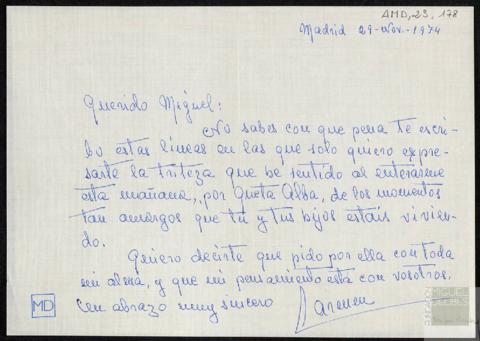 AMD, 23, 178
Madrid 29-Nov.-1974
Querido Miguel:
No sabes con que pena te escri-
bo estas líneas en las que solo quiero expre-
sarte la tristeza que he sentido al enterarme
esta mañana, por Cueta Alba, de los momentos
tan amargos que tú y tus hijos estáis vivien-
do.
Quiero decirte que pido por ella con toda
mi alma, y que mi pensamiento está con vosotros.
Un abrazo muy sincero
Carmen
MD